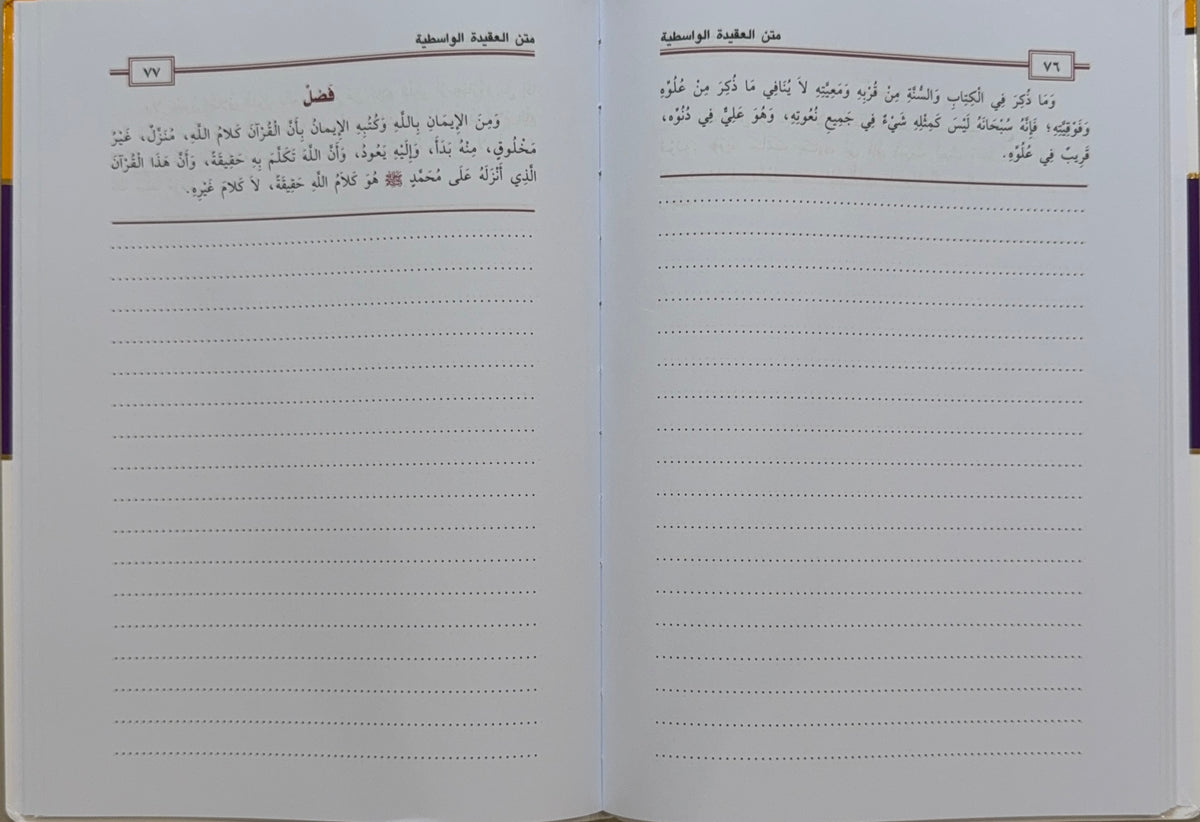 متن العقيدة الواسطية
٧٦
وَمَا ذُكِرَ فِي الْكِتَابِ وَالسُّنَّةِ مِنْ قُرْبِهِ وَمَعِيَّتِهِ لاَ يُنَافِي مَا ذُكِرَ مِنْ عُلُوِّهِ
وَفَوْقِيَّتِهِ؛ فَإِنَّهُ سُبْحَانَهُ لَيْسَ كَمِثْلِهِ شَيْءٌ فِي جَمِيعِ نُعُوتِهِ، وَهُوَ عَلِيٌّ فِي دُنُوِّه،
قَرِيبٌ فِي عُلُوِّهِ.
متن العقيدة الواسطية
٧٧
فَصْلٌ
وَمِنَ الإِيمَانِ بِاللَّهِ وَكُتُبِهِ الإِيمانُ بِأَنَّ الْقُرْآنَ كَلامُ اللَّهِ، مُنَزَّلٌ، غَيْرُ
مَخْلُوقٍ، مِنْهُ بَدَأَ، وَإِلَيْهِ يَعُودُ، وَأَنَّ اللَّهَ تَكَلَّمَ بِهِ حَقِيقَةً، وَأَنَّ هَذَا الْقُرْآنَ
الَّذِي أَنْزَلَهُ عَلَى مُحَمَّدٍ ﷺ هُوَ كَلاَمُ اللَّهِ حَقِيقَةً، لاَ كَلامَ غَيْرِهِ.